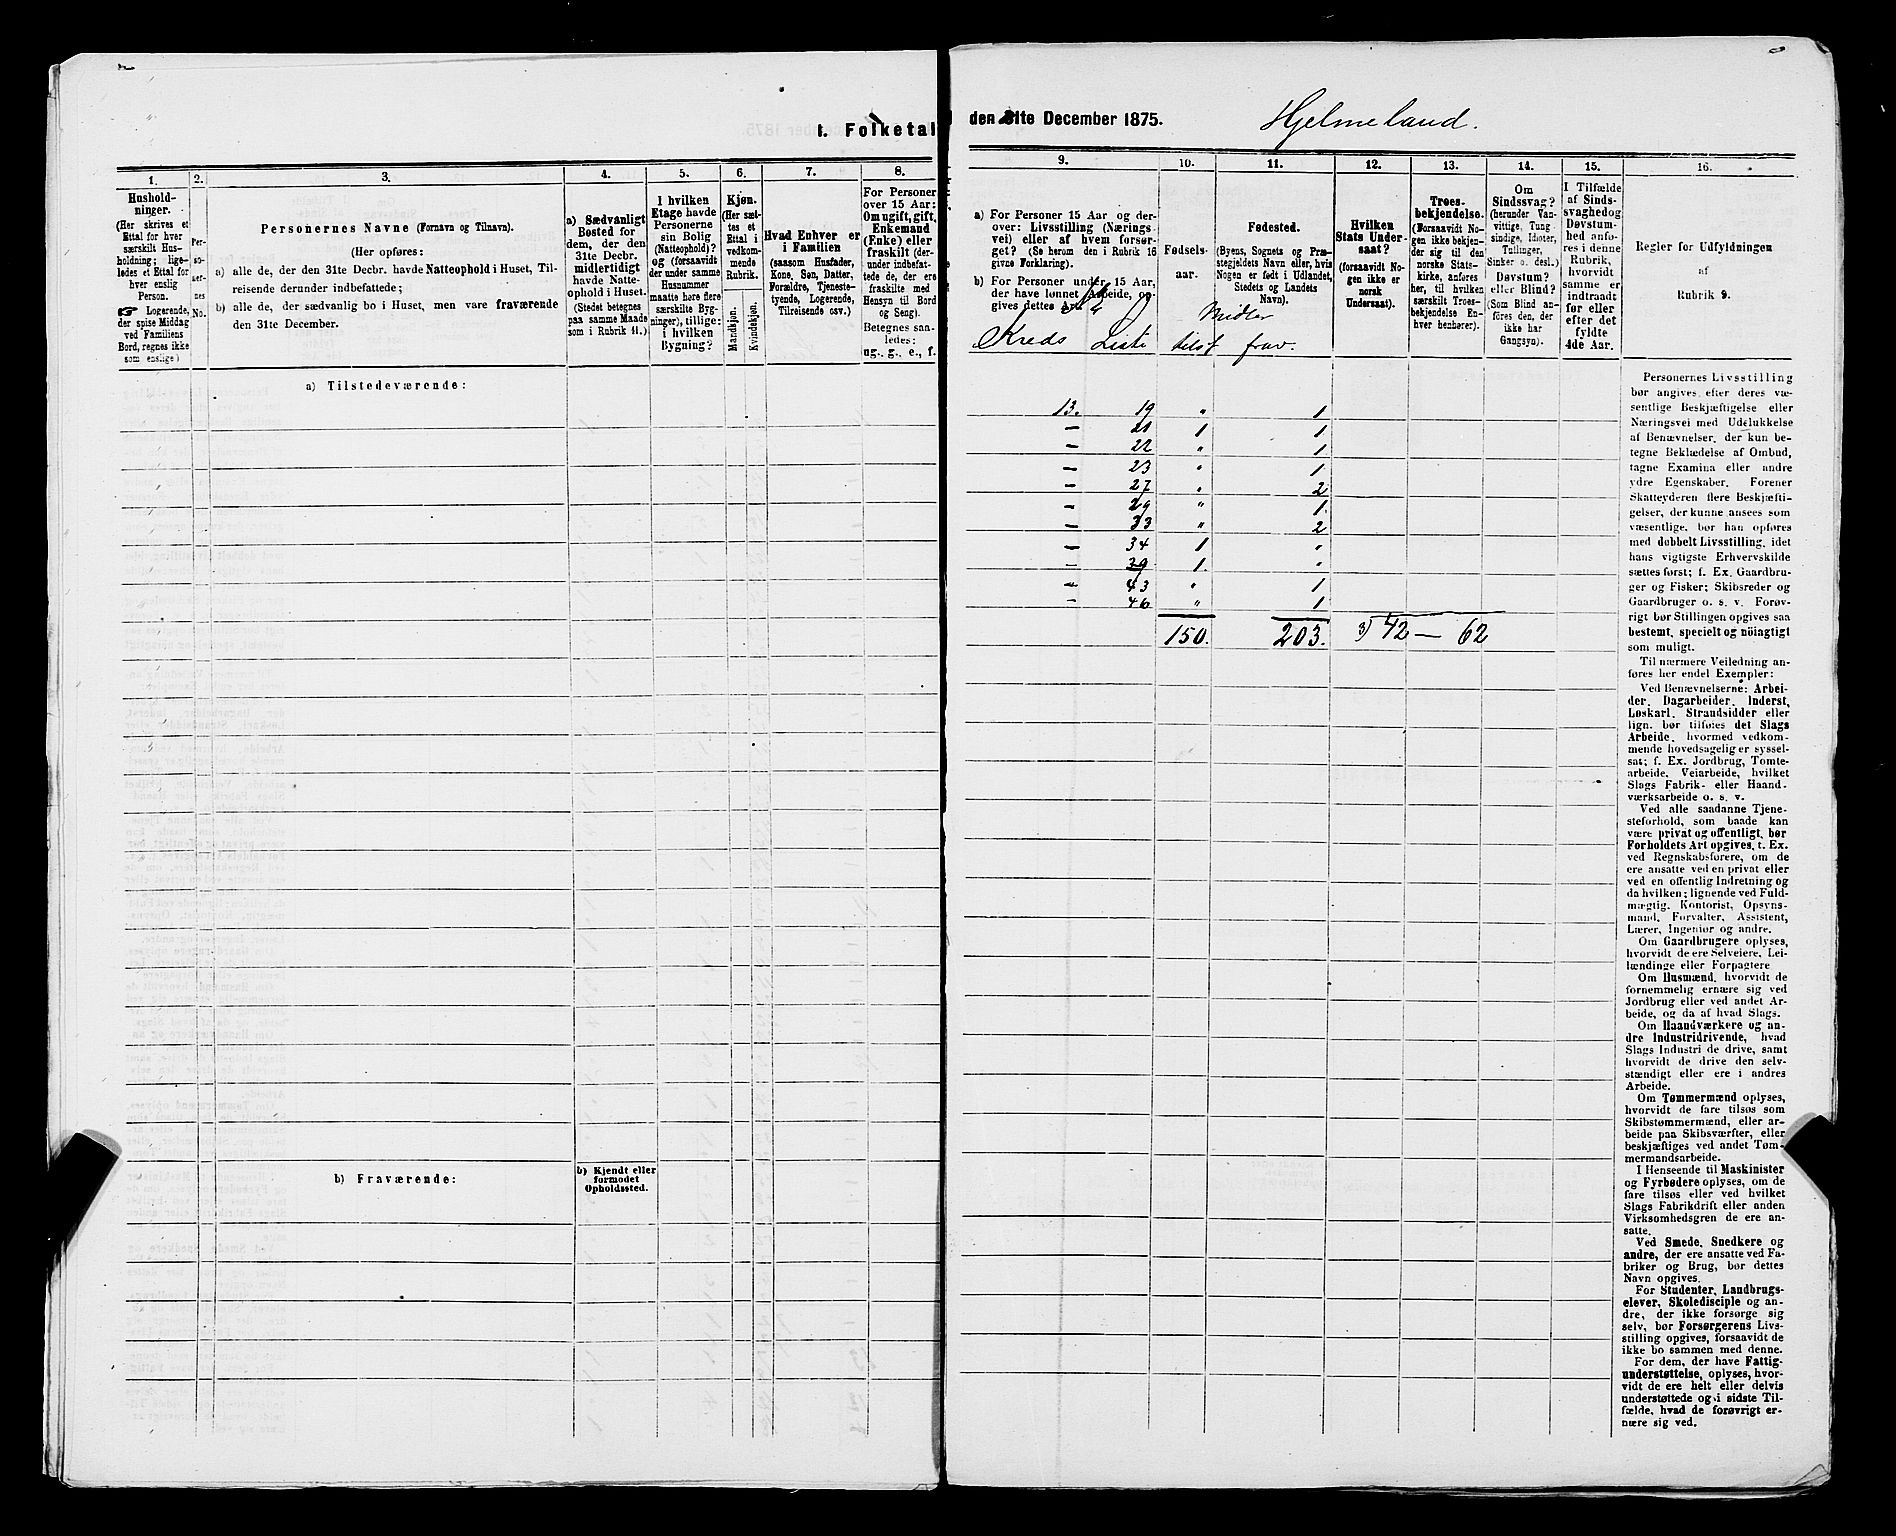 I. Folketal
1.
2.
3.
4.
5.
6.
7.
8.
Hushold-
ninger.
(Her skrives et
Ettal for hver
særskilt Hus-
holdning; lige-
ledes et Ettal for
hver enslig
Person.
☞ Logerende,
der spise Middag
ved Familiens
Bord, regnes ikke
som enslige)
Per-
so-
ner-
nes
No.
Personernes Navne (Fornavn og Tilnavn).
(Her opføres:
a) alle de, der den 31te Decbr. havde Natteophold i Huset, Til-
reisende derunder indbefattede;
b) alle de, der sædvanlig bo i Huset, men vare fraværende
den 31te December.
a) Sædvanligt
Bosted for
dem, der den
31te Decbr.
midlertidigt
havde Natte-
ophold i Huset.
(Stedet betegnes
paa samme Maade
som i Rubrik 11.)
I hvilken
Etage havde
Personerne
sin Bolig
(Natteophold)?
og (forsaavidt
der under samme
Husnummer
maatte høre flere
særskilte Byg-
ninger), tillige:
i hvilken
Bygning?
Kjøn.
(Her sæt-
tes et
Ettal i
vedkom-
mende
Rubrik.
Mandkjøn.
Kvindekjøn.
Hvad Enhver er
i Familien
(saasom Husfader,
Kone, Søn, Datter,
Forældre, Tjeneste-
tyende, Logerende,
Tilreisende osv.)
For Personer
over 15 Aar:
Om ugift, gift,
Enkemand
(Enke) eller
fraskilt (der-
under indbefat-
tede de, der ere
fraskilte med
Hensyn til Bord
og Seng).
Betegnes saa-
ledes:
ug., g., e., f.
a) Tilstedeværende:
b) Fraværende:
b) Kjendt eller
formodet
Opholdssted.
den 31te December 1875.
Hjelmeland.
9.
10.
11.
12.
13.
14.
15.
16.
a) For Personer 15 Aar og der-
over: Livsstilling (Nærings-
vei) eller af hvem forsør-
get? (Se herom den i Rubrik 16
givne Forklaring).
b) For Personer under 15 Aar,
der have lønnet Arbeide, op-
gives dettes Art.
Fødsels-
aar.
Fødested.
(Byens, Sognets og Præ-
stegjeldets Navn eller, hvis
Nogen er født i Udlandet,
Stedets og Landets
Navn).
Hvilken
Stats Under-
saat?
(forsaavidt No-
gen ikke er
norsk
Undersaat).
Troes-
bekjendelse.
(Forsaavidt No-
gen ikke bekjen-
der sig til den
norske Stats-
kirke, anføres
her, til hvilken
særskilt Troes-
bekjendelse En-
hver henhører).
Om
Sindssvag?
(herunder Van-
vittige, Tung
sindige, Idioter,
Tullinger,
Sinker o. desl.)
Døvstum?
eller Blind?
(Som Blind an-
føres den, der
ikke har
Gangsyn).
I Tilfælde
af Sinds-
svaghed og
Døvstum-
hed anfø-
res i denne
Rubrik,
hvorvidt
samme er
indtraadt
før eller
efter det
fyldte
4de Aar.
Regler for Udfyldningen
af
Rubrik 9.
Midler
Kreds Liste tilst frav.
13. 19 " 1
— 21 1 1
— 22 " 1
— 23 " 1
— 27 " 2
— 29 " 1.
— 33 " 2
— 34 1 "
— 39 1. "
— 43 " 1
— 46 " 1
150. 203. 3) 42 — 62
Personernes Livsstilling
bør angives efter deres væ-
sentlige Beskjæftigelse eller
Næringsvei med Udelukkelse
af Benævnelser, der kun be-
tegne Beklædelse af Ombud,
tagne Examina eller andre
ydre Egenskaber. Forener
Skatteyderen flere Beskjæfti-
gelser, der kunne ansees som
væsentlige, bør han opføres
med dobbelt Livsstilling, idet
hans vigtigste Erhvervskilde
sættes først; f. Ex. Gaardbru-
ger og Fisker; Skibsreder og
Gaardbruger o. s. v. Forøv-
rigt bør Stillingen opgives saa
bestemt, specielt og nøiagtigt
som muligt.
Til nærmere Veiledning an-
føres her endel Exempler:
Ved Benævnelserne: Arbei-
der, Dagarbeider, Inderst,
Løskarl, Strandsidder eller
lign. bør tilføres det Slags
Arbeide, hvormed vedkom-
mende hovedsagelig er syssel-
sat; f. Ex. Jordbrug, Tomte-
arbeide, Veiarbeide, hvilket
Slags Fabrik- eller Haand-
værksarbeide o. s. v.
Ved alle saadanne Tjene-
steforhold, som baade kan
være privat og offentligt, bør
Forholdets Art opgives, t. Ex.
ved Regnskabsførere, om de
ere ansatte ved en privat eller
ved en offentlig Indretning og
da hvilken; lignende ved Fuld-
mægtig, Kontorist, Opsyns-
mand, Forvalter, Assistent,
Lærer, Ingeniør og andre.
Om Gaardbrugere oplyses,
hvorvidt de ere Selveiere, Lei-
lændinge eller Forpagtere
Om Husmænd, hvorvidt de
fornemmelig ernære sig ved
Jordbrug eller ved andet Ar-
beide, og da af hvad Slags.
Om Haandværkere og an-
dre Industridrivende, hvad
Slags Industri de drive, samt
hvorvidt de drive den selv-
stændigt eller ere i andres
Arbeide.
Om Tømmermænd oplyses,
hvorvidt de fare tilsøs som
Skibstømmermænd, eller ar-
beide paa Skibsværfter, eller
beskjæftiges ved andet Tøm-
mermandsarbeide.
I Henseende til Maskinister
og Fyrbødere oplyses, om de
fare tilsøs eller ved hvilket
Slags Fabrikdrift eller anden
Virksomhedsgren de ere an-
satte.
Ved Smede, Snedkere og
andre, der ere ansatte ved Fa-
briker og Brug, bør dettes
Navn opgives.
For Studenter, Landbrugs-
elever, Skoledisciple og an-
dre, der ikke forsørge sig
selv, bør Forsørgerens Livs-
stilling opgives, forsaavidt de
ikke bo sammen med denne.
For dem, der have Fattig-
understøttelse, oplyses, hvor-
vidt de ere helt eller delvis
understøttede og i sidste Til-
fælde, hvad de forøvrigt er-
nære sig ved.